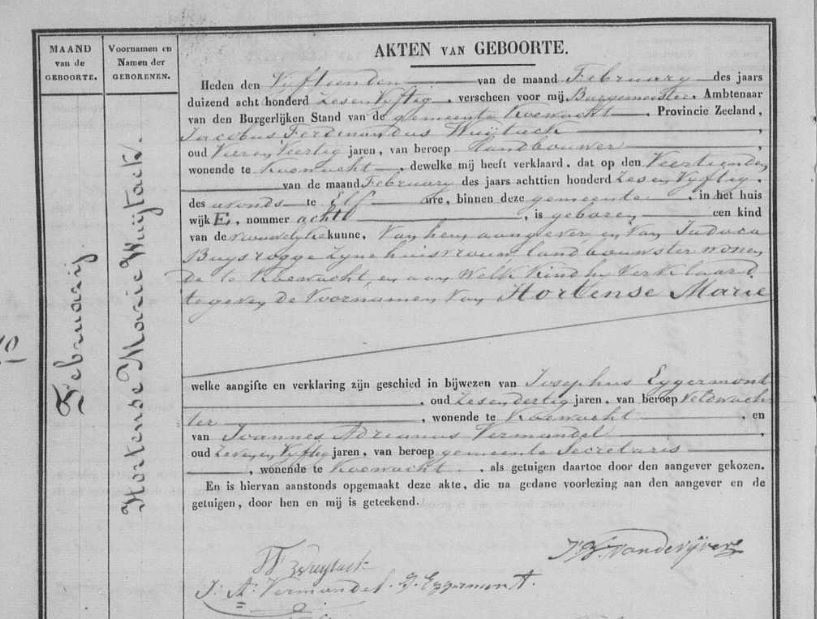 AKTEN VAN GEBOORTE.
MAAND
van de
GEBOORTE.
Voornamen en
Namen der
GEBORENEN.
Februarij
Hortense Marie Wuÿtack.
10
Heden den Vyftienden van de maand February des jaars
duizend acht honderd Zes en Vyftig, verscheen voor mij Burgemeester Ambtenaar
van den Burgerlijken Stand van de gemeente Koewacht, Provincie Zeeland,
Jacobus Ferdinandus Wuÿtack,
oud Vier en Veertig jaren, van beroep Landbouwer,
wonende te Koewacht, dewelke mij heeft verklaard, dat op den Veertienden
van de maand February des jaars achttien honderd Zes en Vyftig,
des avonds te Elf ure, binnen deze gemeente, in het huis
wijk E, nommer achte, is geboren een kind
van de vrouwelyke kunne, Van hem aangever en Van Judoca
Buysrogge Zyne huisvrouw, landbouwster wonen
de te Koewacht, en aan Welk kind hy Verklaard
te geven de Voornamen Van Hortense Marie
welke aangifte en verklaring zijn geschied in bijwezen van Josephus Eggermont
, oud Zes en dertig jaren, van beroep Veldwach
ter, wonende te Koewacht, en
van Joannes Adrianus Vermandel,
oud Zeven en Vyftig jaren, van beroep gemeente Secretaris
, wonende te Koewacht, als getuigen daartoe door den aangever gekozen.
En is hiervan aanstonds opgemaakt deze akte, die na gedane voorlezing aan den aangever en de
getuigen, door hen en mij is geteekend.
J. B. Vandevijvere
J. A. Vermandel. J. Eggermont.